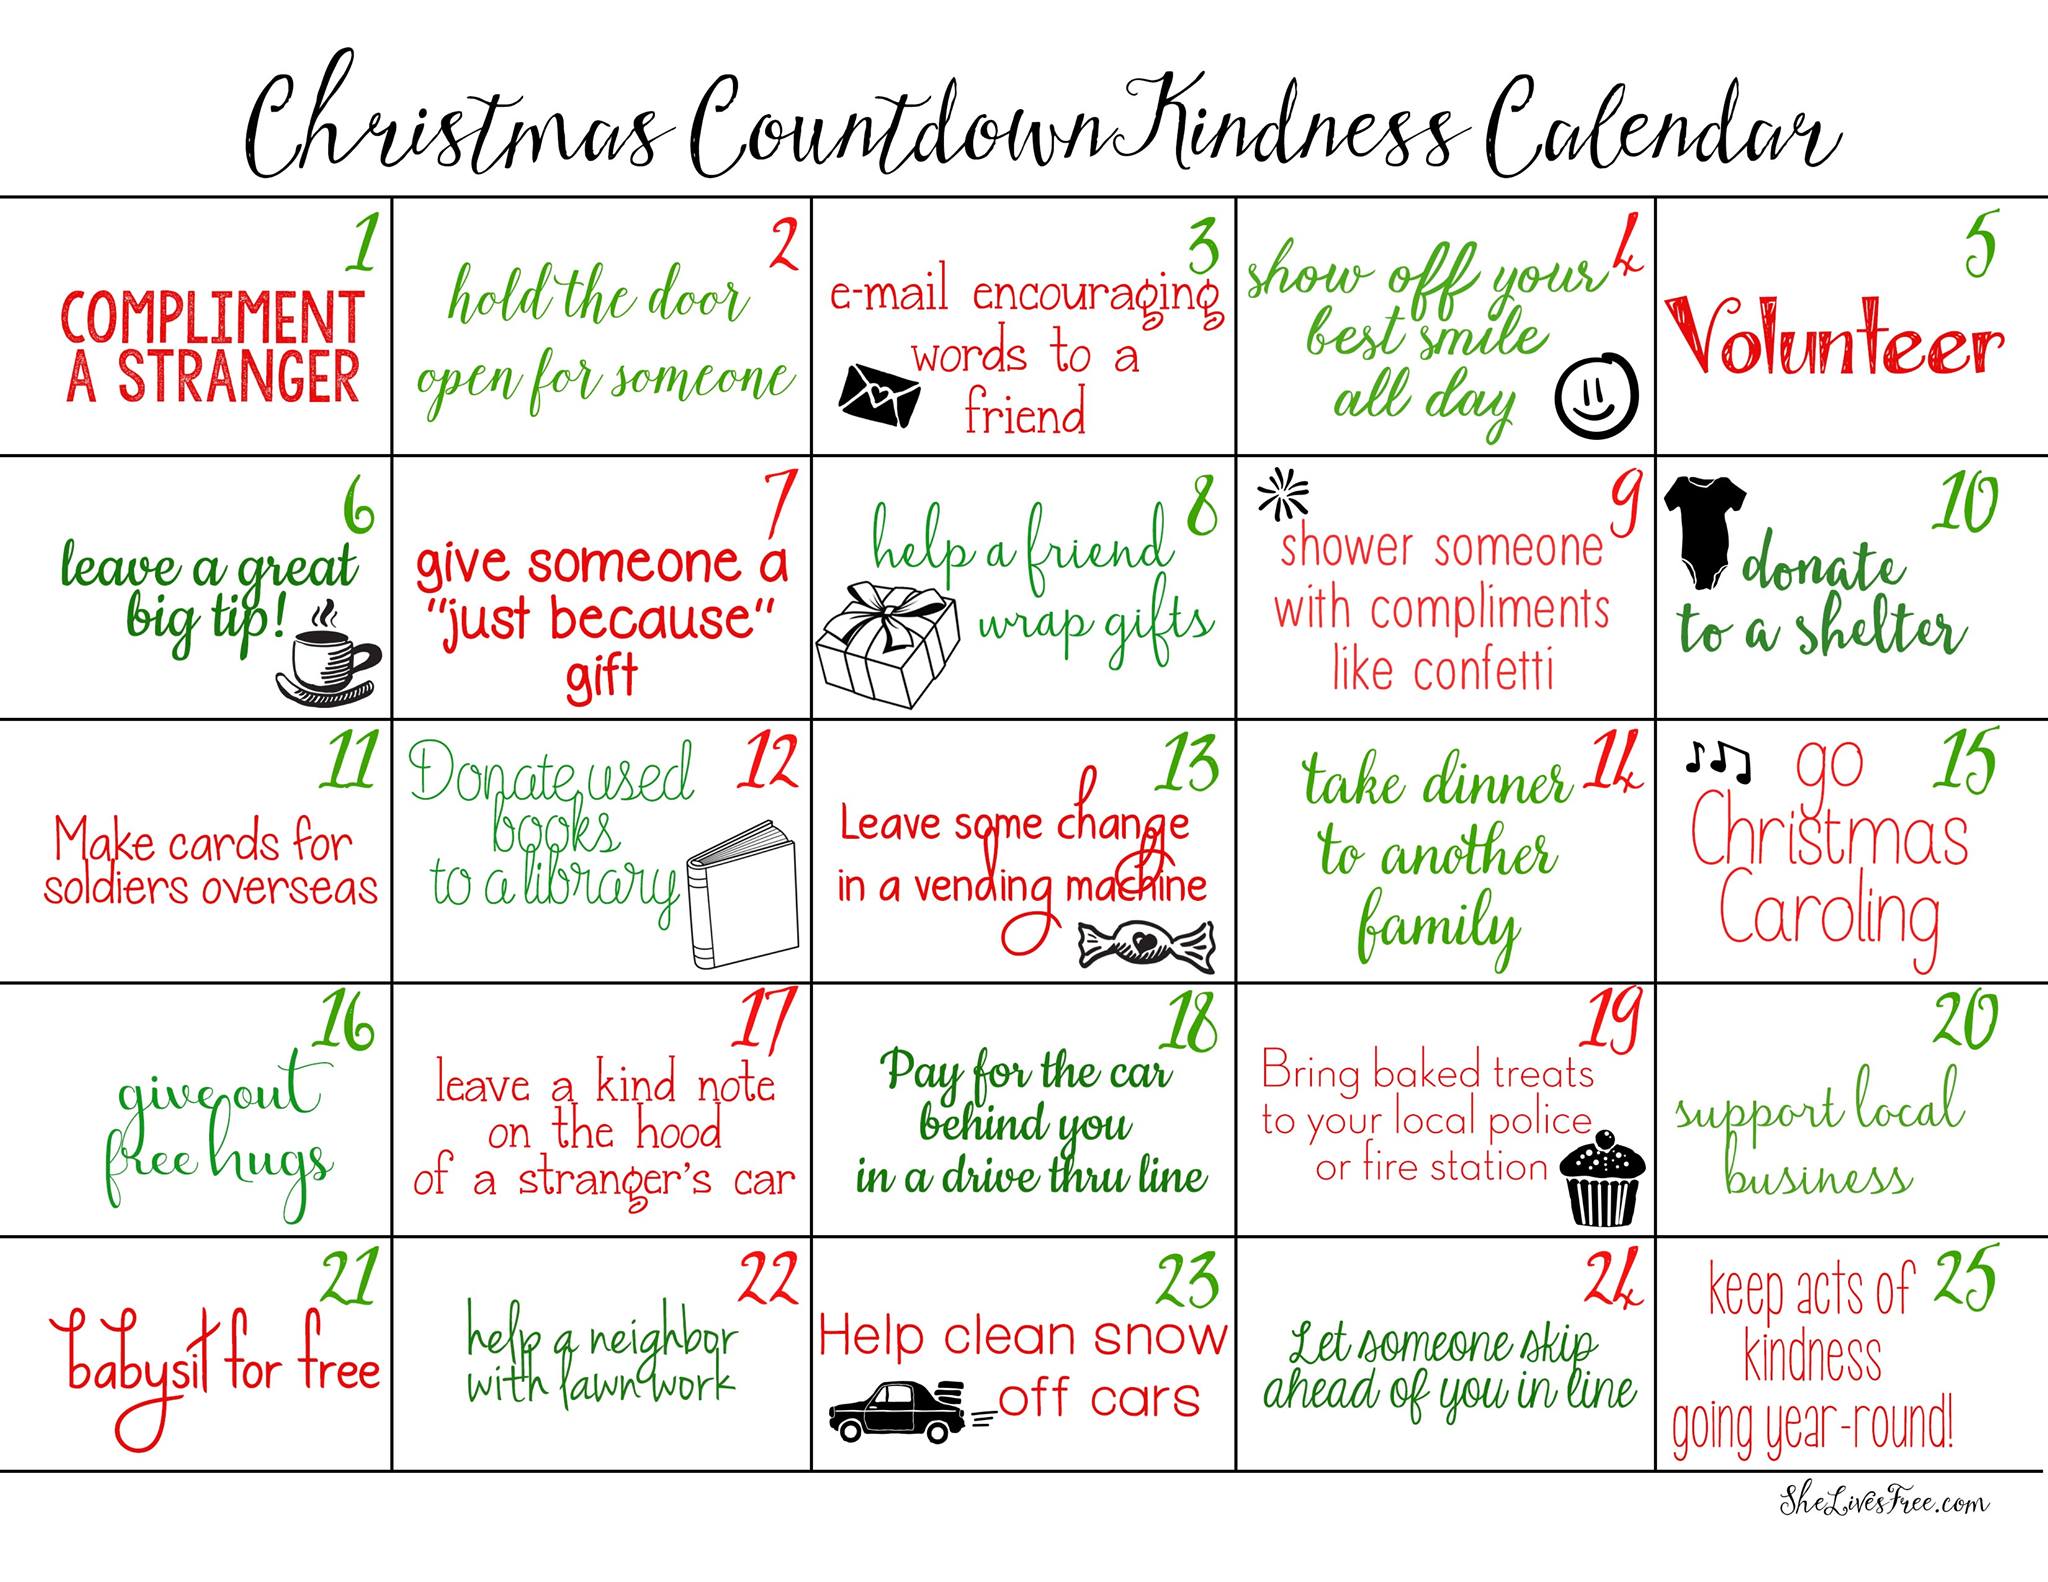 Christmas Countdown Kindness Calendar
1
COMPLIMENT
A STRANGER
2
hold the door
open for someone
3
e-mail encouraging
words to a
friend
4
show off your
best smile
all day
5
Volunteer
6
leave a great
big tip!
7
give someone a
"just because"
gift
8
help a friend
wrap gifts
9
shower someone
with compliments
like confetti
10
donate
to a shelter
11
Make cards for
soldiers overseas
12
Donate used
books
to a library
13
Leave some change
in a vending machine
14
take dinner
to another
family
15
go
Christmas
Caroling
16
give out
free hugs
17
leave a kind note
on the hood
of a stranger's car
18
Pay for the car
behind you
in a drive thru line
19
Bring baked treats
to your local police
or fire station
20
support local
business
21
babysit for free
22
help a neighbor
with lawn work
23
Help clean snow
off cars
24
Let someone skip
ahead of you in line
25
keep acts of
kindness
going year-round!
SheLivesFree.com